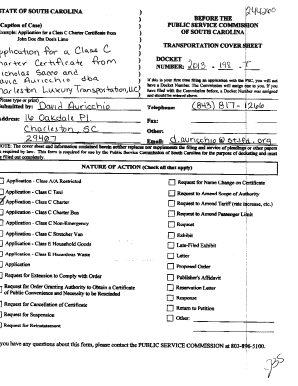 244200
STATE OF SOUTH CAROLINA
(Caption of Case)
Example: Application for a Class C Charter Certificate from
John Doe dba Doe's Limo
Application for a Class C
Charter Certificate from
Nicholas Sacco and
David Auricchio dba
Charleston Luxury Transportation, LLC
BEFORE THE
PUBLIC SERVICE COMMISSION
OF SOUTH CAROLINA
TRANSPORTATION COVER SHEET
DOCKET
NUMBER: 2013 - 198 - T
If this is your first time filing an application with the PSC, you will not
have a Docket Number. The Commission will assign one to you. If you
have filed with the Commission before, a Docket Number was assigned
and should be entered above.
(Please type or print)
Submitted by: David Auricchio
Address: 16 Oakdale Pl.
Charleston, SC
29407
Telephone: (843) 817-1266
Fax:
Other:
Email:
NOTE: The cover sheet and information contained herein neither replaces nor supplements the filing and service of pleadings or other papers
as required by law. This form is required for use by the Public Service Commission of South Carolina for the purpose of docketing and must
be filled out completely.
NATURE OF ACTION (Check all that apply)
Application - Class A/A Restricted
Application - Class C Taxi
Application - Class C Charter
Application - Class C Charter Bus
Application - Class C Non-Emergency
Application - Class C Stretcher Van
Application - Class E Household Goods
Application - Class E Hazardous Waste
Application
Request for Extension to Comply with Order
Request for Order Granting Authority to Obtain a Certificate
of Public Convenience and Necessity to be Rescinded
Request for Cancellation of Certificate
Request for Suspension
Request for Reinstatement
Request for Name Change on Certificate
Request to Amend Scope of Authority
Request to Amend Tariff (rate increase, etc.)
Request to Amend Passenger Limit
Request
Exhibit
Late-Filed Exhibit
Letter
Proposed Order
Publisher's Affidavit
Reservation Letter
Response
Return to Petition
Other:
If you have any questions about this form, please contact the PUBLIC SERVICE COMMISSION at 803-896-5100.